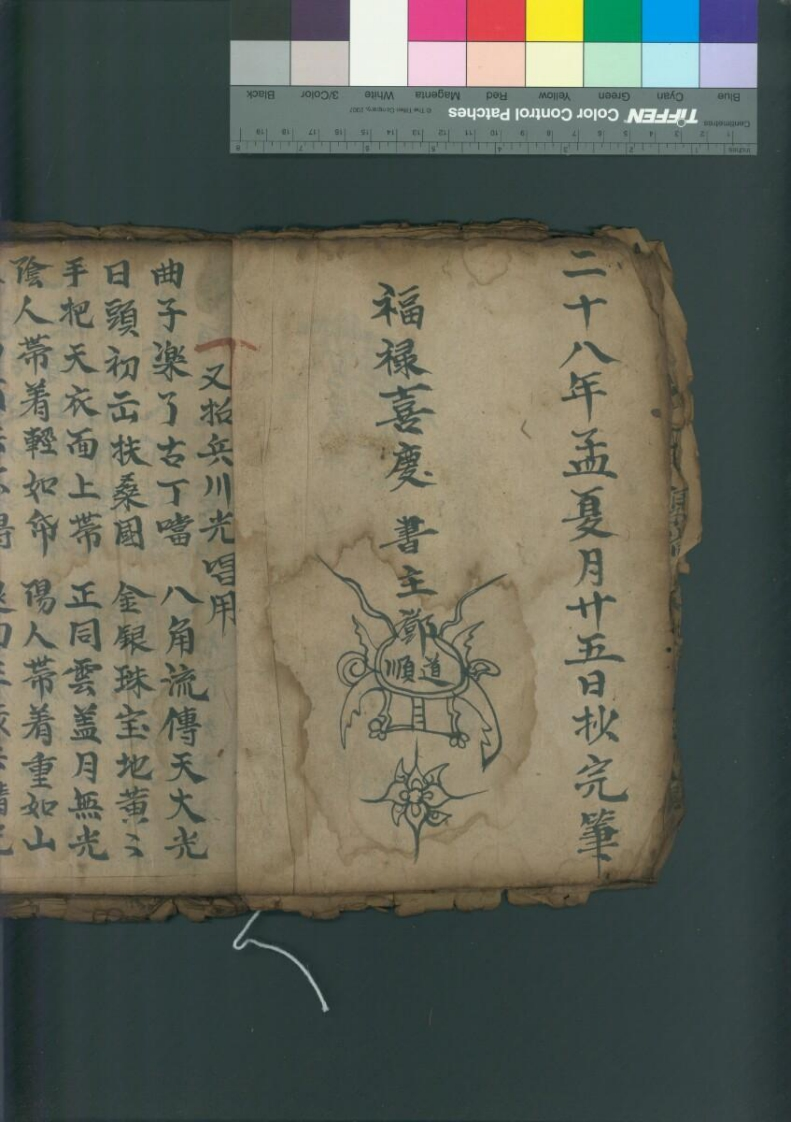 二十八年孟夏月廿五日抄完筆
福禄喜慶 書主鄧
道
順
又招兵川光唱用
曲子楽了古丁噹 八角流傳天大光
日頭初出扶桑國 金銀珠宝地黄〻
手把天衣面上帯 正同雲盖月無光
陰人帯着輕如 陽人帯着重如山
TIFFEN Color Control Patches
© The Tiffen Company, 2007
Centimetres
Inches
Blue Cyan Green Yellow Red Magenta White 3/Color Black